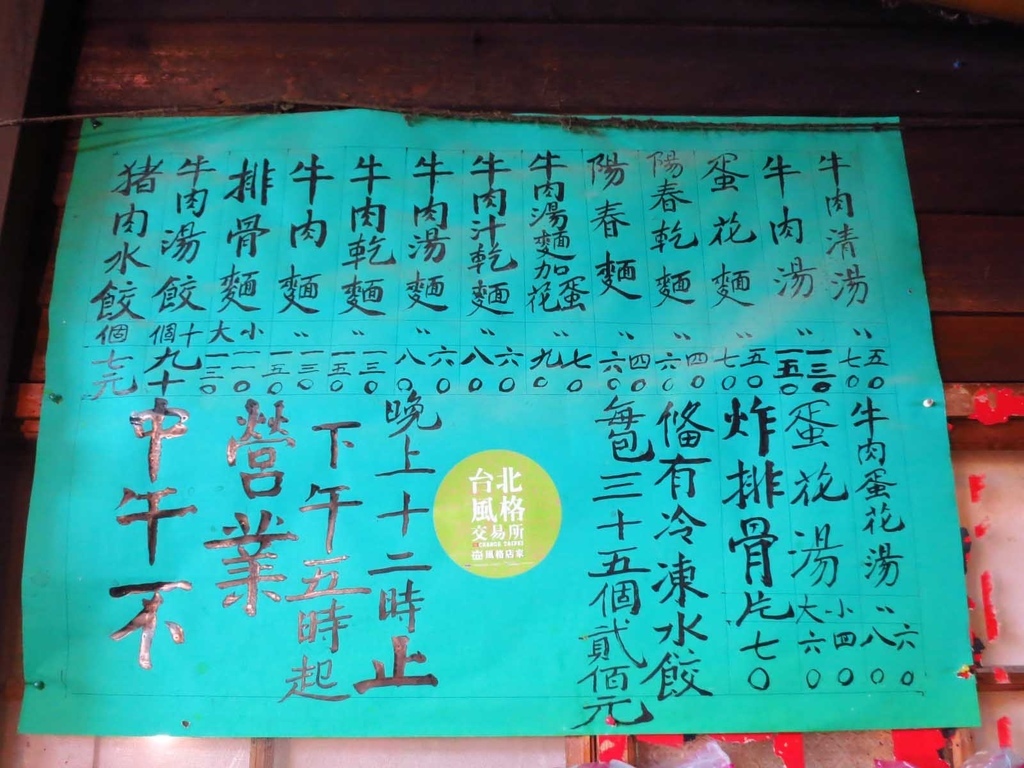 猪肉水餃 個 七元
牛肉湯餃 十個 九十
排骨麵 大小 一三〇 一一〇
牛肉麵 〃 一五〇 一三〇
牛肉乾麵 〃 一五〇 一三〇
牛肉湯麵 〃 八〇 六〇
牛肉汁乾麵 〃 八〇 六〇
牛肉湯麵加蛋花 〃 九〇 七〇
陽春麵 〃 六〇 四〇
陽春乾麵 〃 六〇 四〇
蛋花麵 〃 七〇 五〇
牛肉湯 〃 一五〇 一三〇
牛肉清湯 〃 七〇 五〇
牛肉蛋花湯 〃 八〇 六〇
蛋花湯 大小 六〇 四〇
炸排骨片 七〇
俻有冷凍水餃
每包三十五個貳佰元
中午不
營業
下午五時起
晚上十二時止
台北
風格
交易所
CHANGE TAIPEI
風格店家